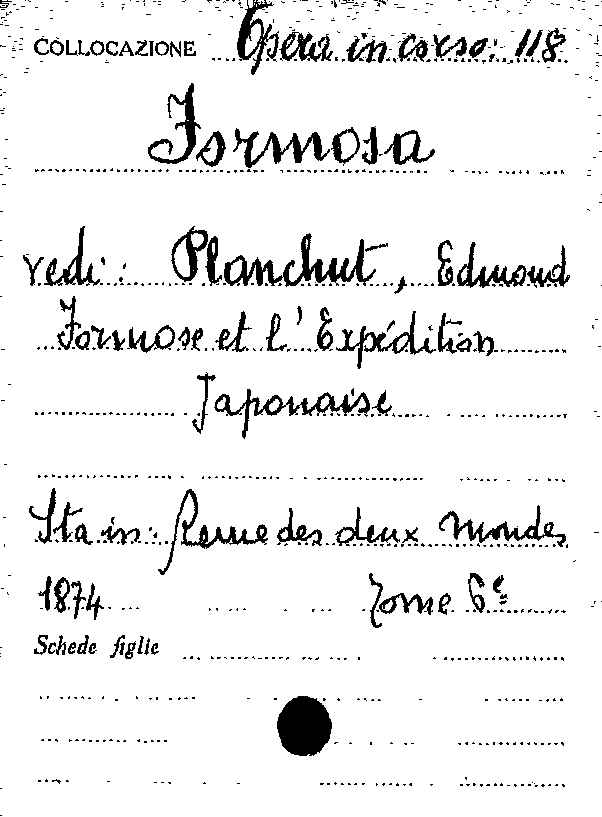 COLLOCAZIONE Opera in corso: 118
Formosa
vedi: Planchut, Edmond
Formose et l'Expédition
Japonaise
Sta in: Revue des deux Mondes
1874 Tome 6e
Schede figlie